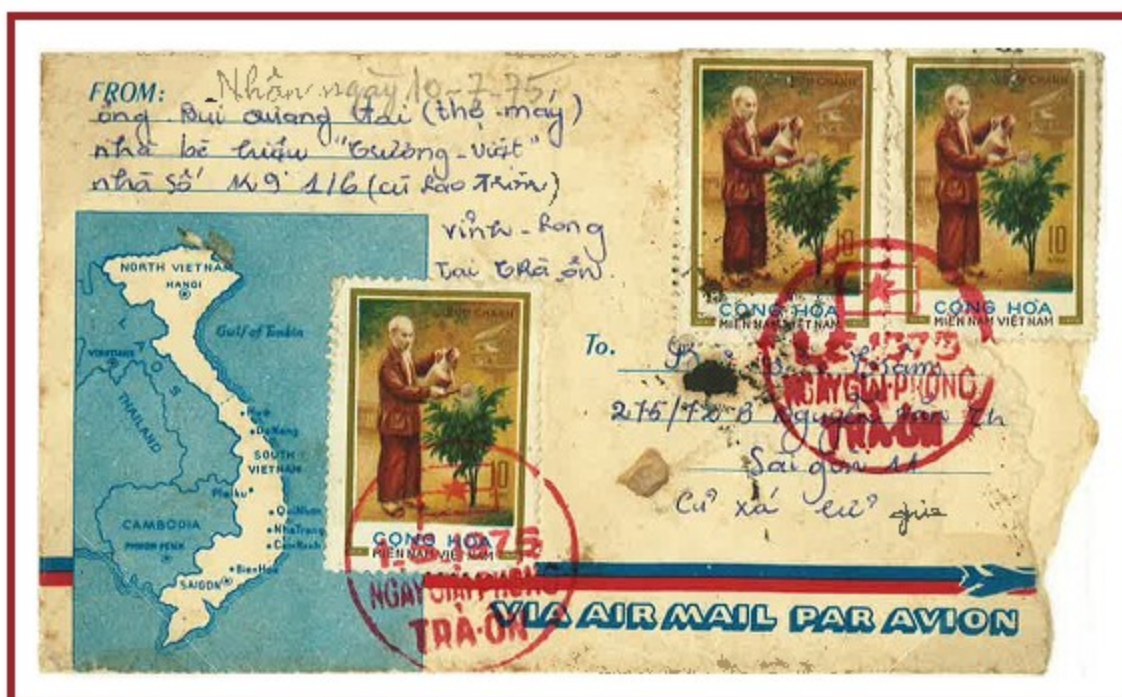 FROM:
Nhân ngày 10-7-75
ông Bùi quang Hai (thợ máy)
nhà bè hiệu "Trường-Việt"
nhà số 1/6 (cù lao
Vĩnh-Long
tại Trà ôn.
NORTH VIETNAM
HANOI
Gulf of Tonkin
LAOS
VIENTIANE
THAILAND
Hué
DaNang
SOUTH
VIETNAM
Pleiku
QuiNhon
NhaTrang
CamRanh
CAMBODIA
PHNOM PENH
BienHoa
SAIGON
10
CỘNG HÒA
MIỀN NAM VIỆT NAM
10
CỘNG HÒA
MIỀN NAM VIỆT NAM
10
CỘNG HÒA
MIỀN NAM VIỆT NAM
To.
275/72 B Nguyễn
Sài gòn 11
Cư xá
NGÀY GIẢI-PHÓNG
TRÀ-ÔN
NGÀY GIẢI-PHÓNG
TRÀ-ÔN
VIA AIR MAIL PAR AVION